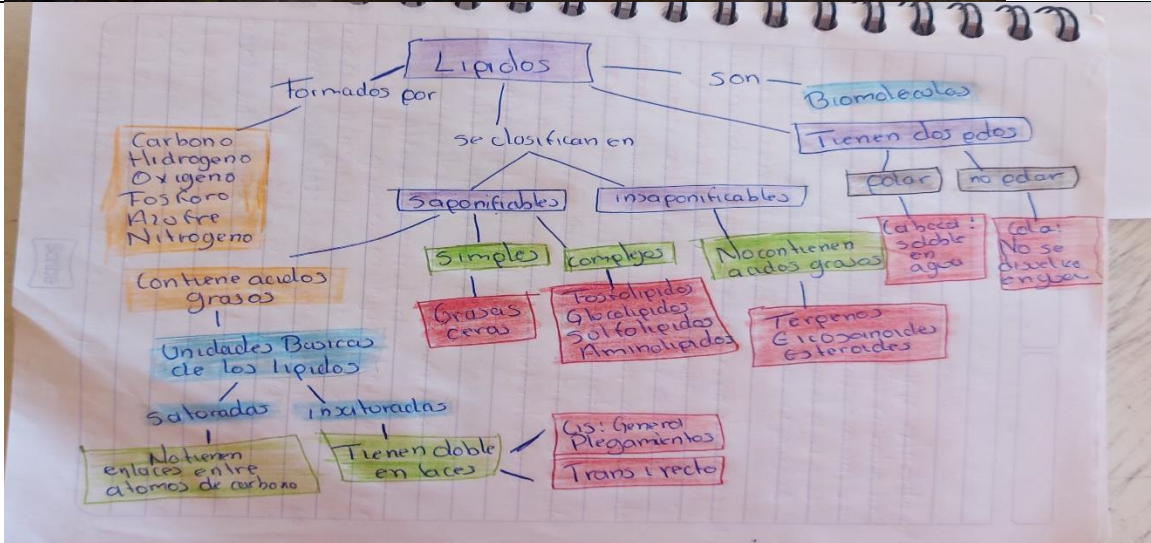 Lípidos
Formados por
son
Biomoleculas
Carbono
Hidrogeno
Oxigeno
Fosforo
Azufre
Nitrogeno
se clasifican en
Tienen dos edos
polar
no polar
Cabeza:
soluble
en
agua
Cola:
No se
disuelve
en guea
Saponificables
insaponificables
Contiene acidos
grasos
Simples
Complejos
No contienen
acidos grasos
Grasas
ceras
Fosfolipidos
Glucolipidos
Sulfolipidos
Aminolipidos
Terpenos
Eicosainoides
Esteroides
Unidades Basicas
de los lipidos
Saturadas
insaturadas
No tienen
enlaces entre
atomos de carbono
Tienen doble
en laces
Cis: General
Plegamientos
Trans: recto